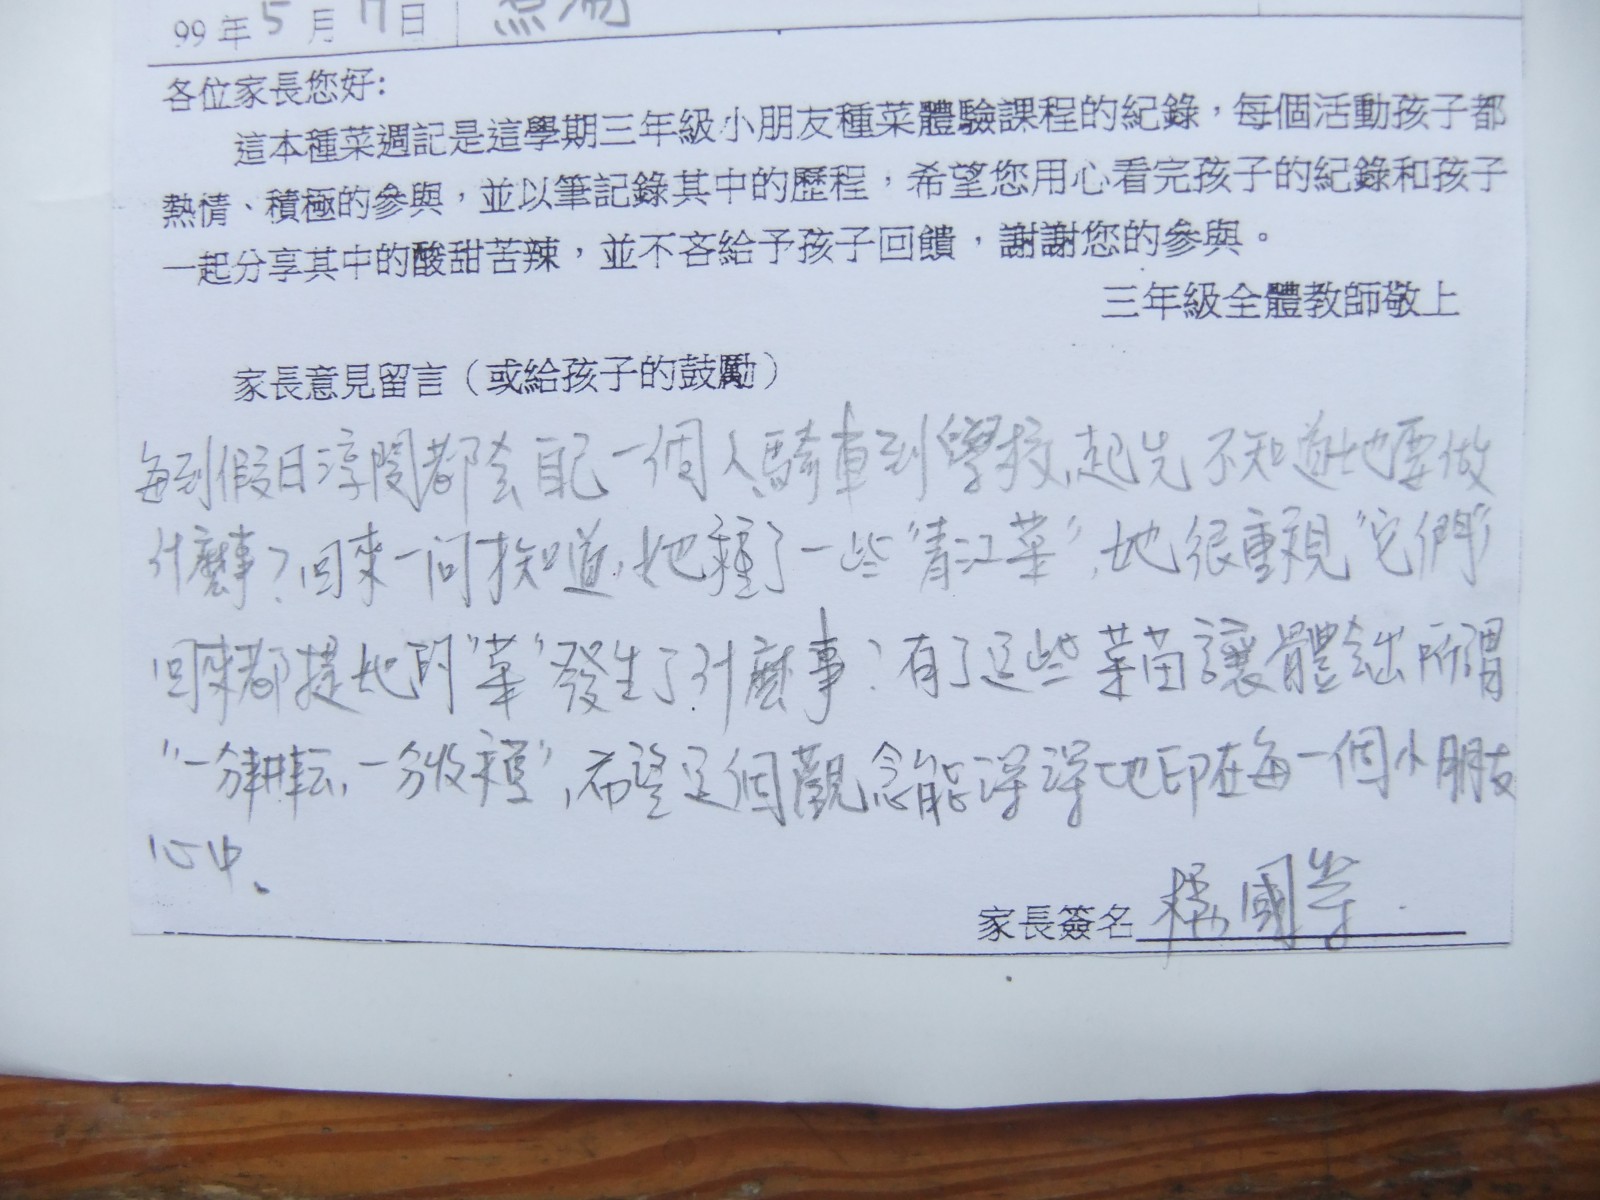 99年5月17日 煮湯
各位家長您好:
這本種菜週記是這學期三年級小朋友種菜體驗課程的紀錄，每個活動孩子都
熱情、積極的參與，並以筆記錄其中的歷程，希望您用心看完孩子的紀錄和孩子
一起分享其中的酸甜苦辣，並不吝給予孩子回饋，謝謝您的參與。
三年級全體教師敬上
家長意見留言（或給孩子的鼓勵）
每到假日淳閔都會自己一個人騎車到學校,起先不知道她要做
什麼事?回來一問才知道,她種了一些"青江菜",她很重視"它們"
回來都提她們"菜"發生了什麼事?有了這些菜苗讓體會出所謂
"一分耕耘,一分收穫",希望這個觀念能深深地印在每一個小朋友
心中。
家長簽名 楊國